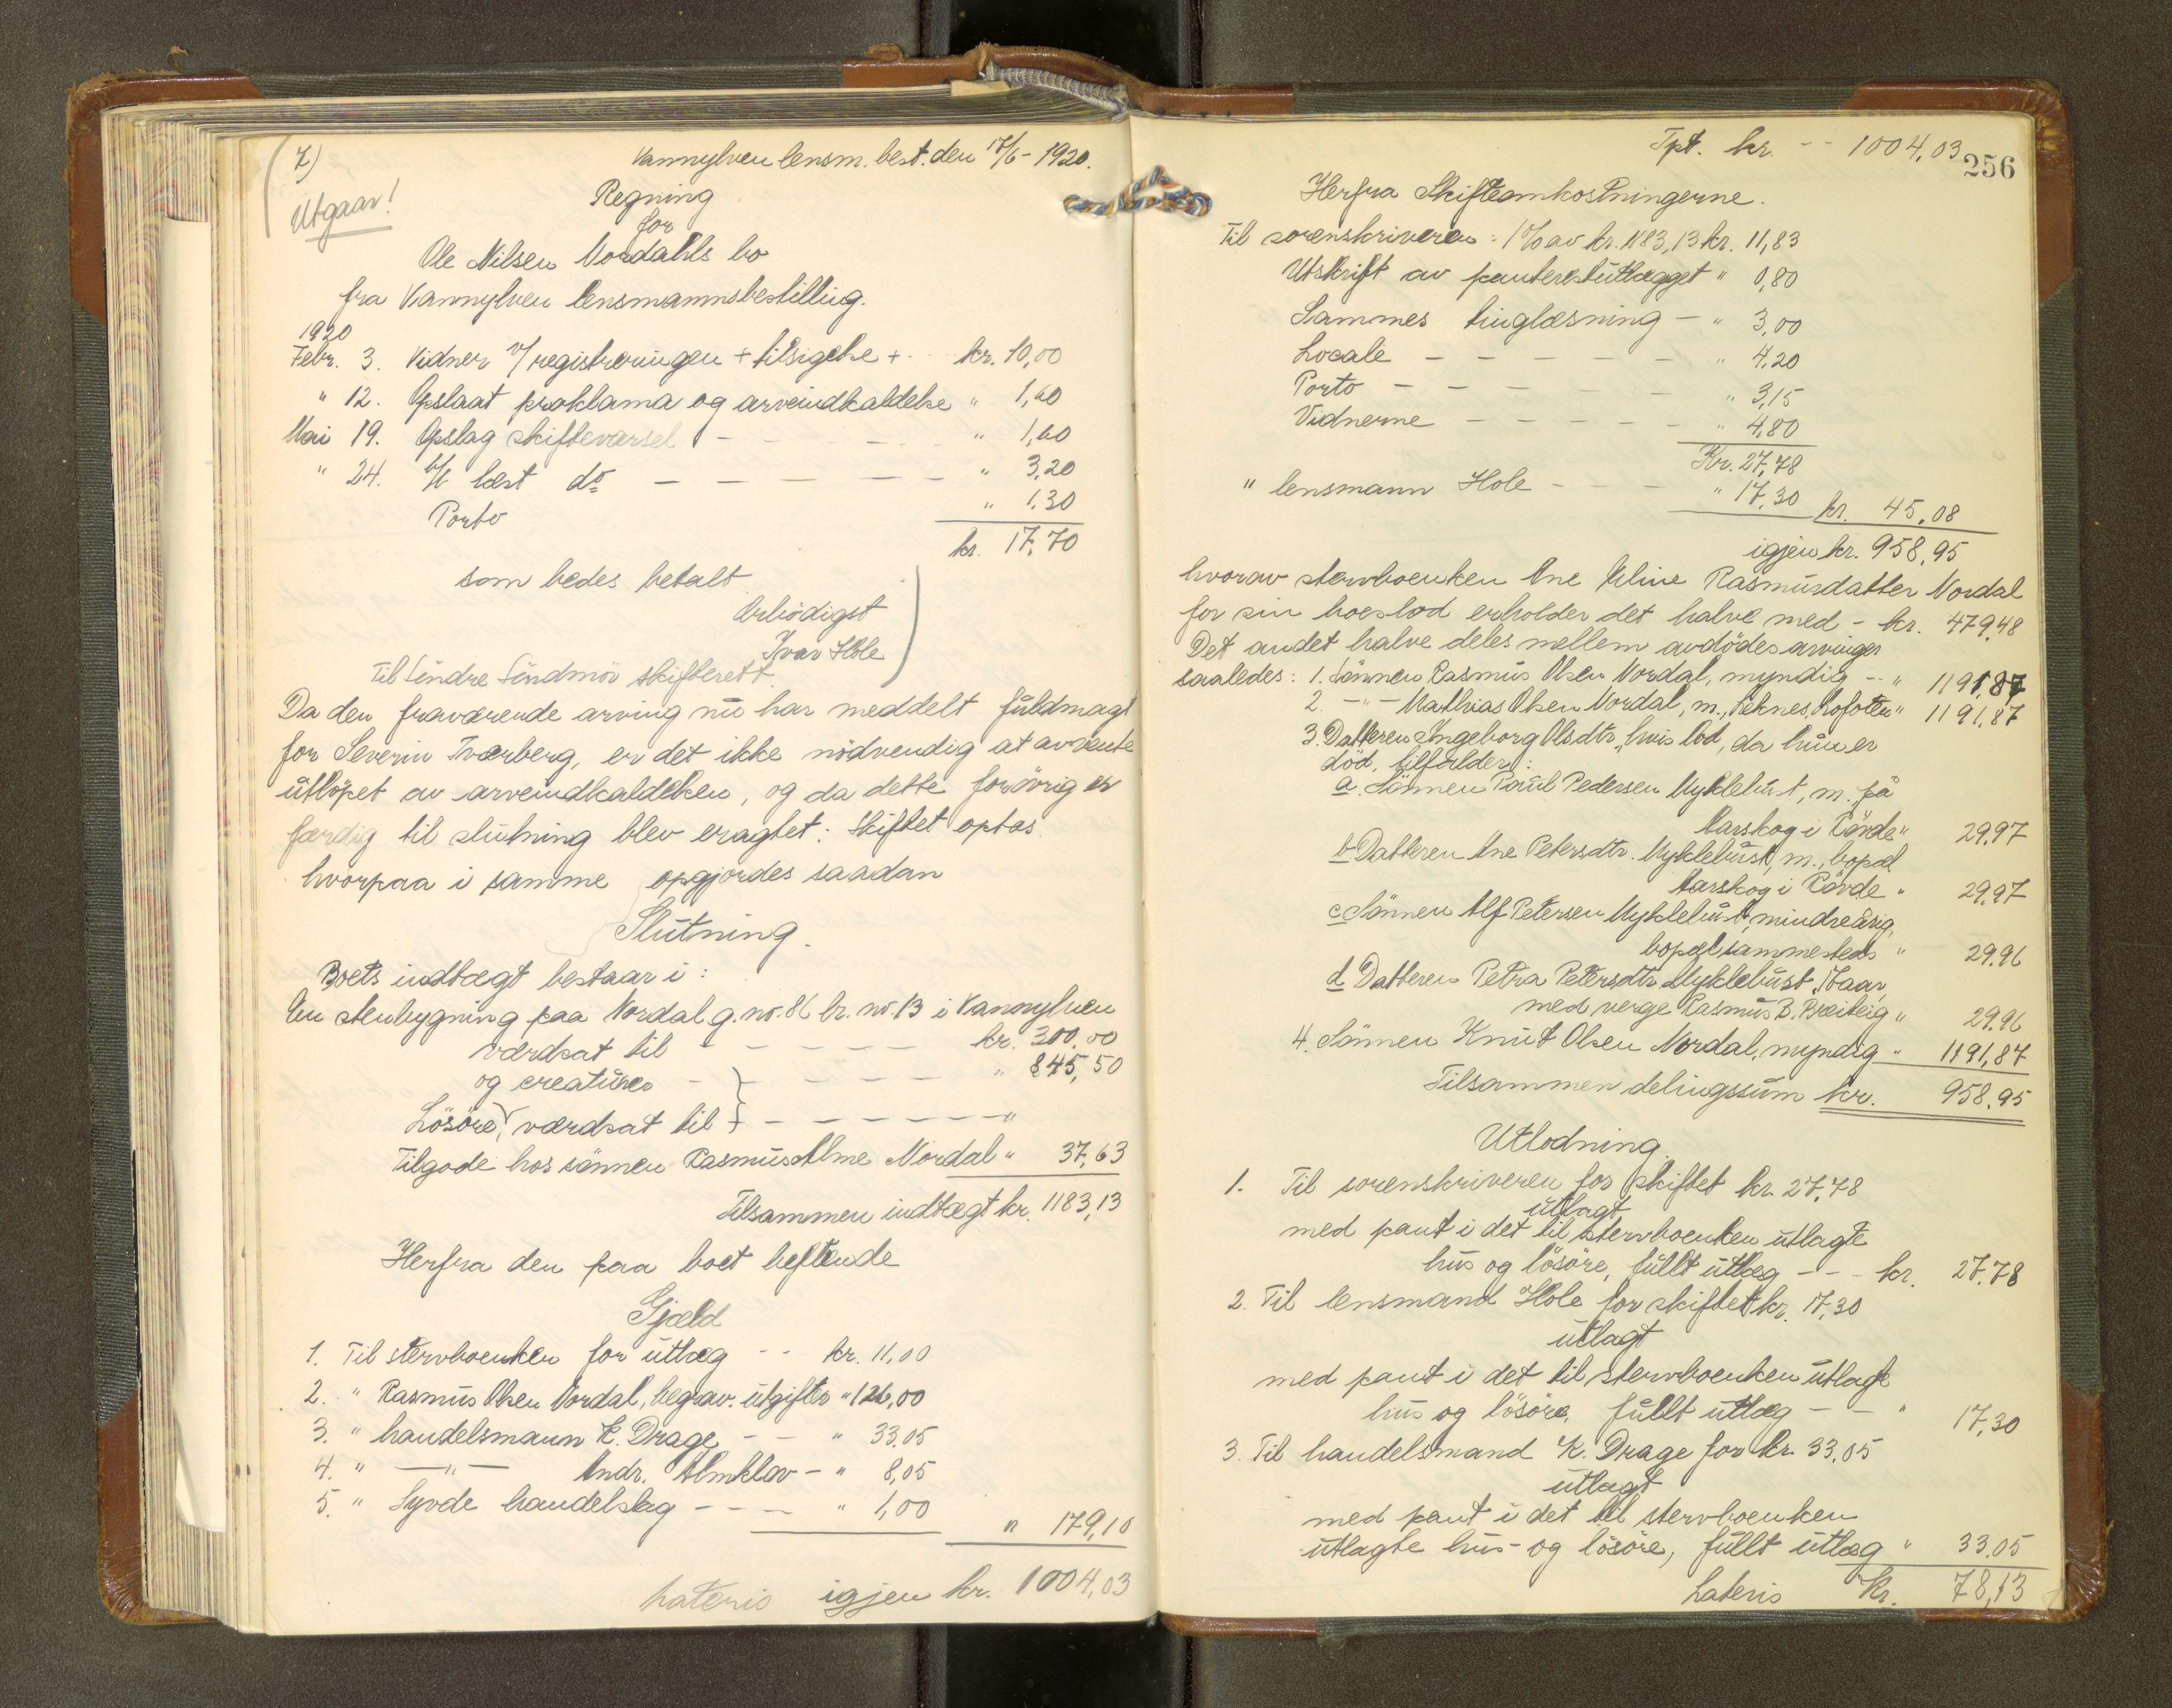 7)
Utgaar!
Vannylven lensm. best. den 17/6 - 1920.
Regning
for
Ole Nilsen Nordahls bo
fra Vannylven lensmannsbestilling.
1920
Febr. 3. Vidner v/ registreringen + tilsigelse + kr. 10,00
" 12. Opslaat proklama og arveindkaldelse " 1,60
Mai 19. Opslag skiftevarsel - - - - " 1,60
" 24. læst do - - - - - " 3,20
Porto " 1.30
kr. 17,70
som bedes betalt
Ærbödigst
Ivar Hole
Til Söndre Söndmör skifterett.
Da den fraværende arving nu har meddelt fuldmagt
for Severin Tværberg, er det ikke nödvendig at avvente
utlöpet av arveindkaldelsen, og da dette forövrig er
færdig til slutning blev eragtet: Skiftet optas
hvorpaa i samme opgjordes saadan
Slutning.
Boets indtægt bestaar i:
En stenbygning paa Nordal g. no. 86 br. no. 13 i Vannylven
værdsat til - - - - - kr. 300,00
og creaturer - - - - - " 845,50
Lösöre, værdsat til - - - - - "
Tilgode hos sönnen Rasmus Alme Nordal " 37,63
Tilsammen indtægt kr. 1183,13
Herfra den paa boet heftende
Gjæld
1. Til stervboenken for utlæg - - kr. 11,00
2. " Rasmus Olsen Nordal, begrav. utgifter " 126,00
3. " handelsmann K. Drage - - " 33,05
4. " —"— Andr. Almklov - " 8,05
5. " Syvde handelslag - - - " 1,00
" 179,10
Lateris igjen kr. 1004,03
Tpt. kr. - - 1004,03
256
Herfra Skifteomkostningerne.
Til sorenskriveren: 1% av kr. 1183,13 kr. 11,83
Utskrift av panteretsutlægget " 0,80
Sammes tinglæsning - " 3,00
Locale - - - - - " 4,20
Porto - - - - - " 3,15
Vidnerne - - - - - " 4,80
Kr. 27,78
" lensmann Hole - - - " 17,30 kr. 45,08
igjen kr. 958,95
hvorav stervboenken Ane Eline Rasmusdatter Nordal
for sin boeslod erholder det halve med - kr. 479,48
Det andet halve deles mellem avdödes arvinger
saaledes: 1. Sönnen Rasmus Olsen Nordal, myndig - - " 119,87
2. - " - Mathias Olsen Nordal, m., Lofoten " 119,87
3. Datteren Ingeborg Olsdtr., hvis lod, da hun er
död, tilfalder:
a. Sönnen Paul Pedersen Myklebust, m. på
Aarskog i Rövde " 29,97
b Datteren Ane Petersdtr. Myklebust, m., bopæl
Aarskog i Rövde " 29,97
c Sönnen Alf Petersen Myklebust, mindreårig,
bopæl sammesteds " 29,96
d Datteren Petra Petersdtr Myklebust,
med verge Rasmus B. Breiteig " 29,96
4. Sönnen Knut Olsen Nordal, myndig " 119,87
Tilsammen delingssum kr. 958,95
Utlodning.
1. Til sorenskriveren for skiftet kr. 27,78
utlagt
med pant i det til stervboenken utlagte
hus og lösöre, fullt utlæg - - - kr. 27,78
2. Til lensmand Hole for skiftet kr. 17,30
utlagt
med pant i det til stervboenken utlagte
hus og lösöre, fullt utlæg - - " 17,30
3. Til handelsmand K. Drage for kr. 33,05
utlagt
med pant i det til stervboenken
utlagte hus- og lösöre, fullt utlæg " 33,05
Lateris Kr. 78,13